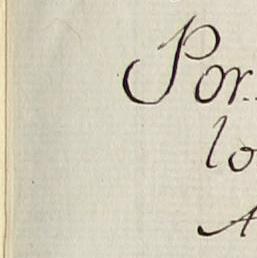 Por
lo
A